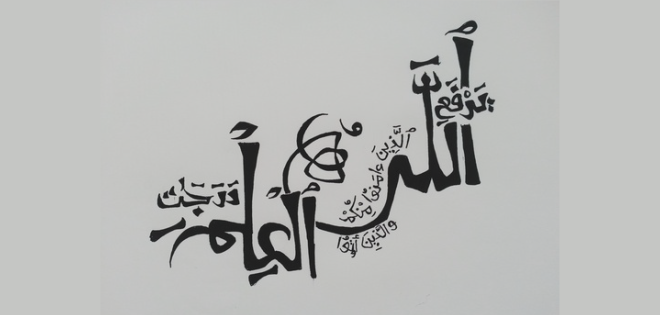 يَرْفَعِ
ٱللَّهُ
ٱلَّذِينَ ءَامَنُوا۟ مِنكُمْ
وَٱلَّذِينَ أُوتُوا۟
ٱلْعِلْمَ
دَرَجَٰتٍ